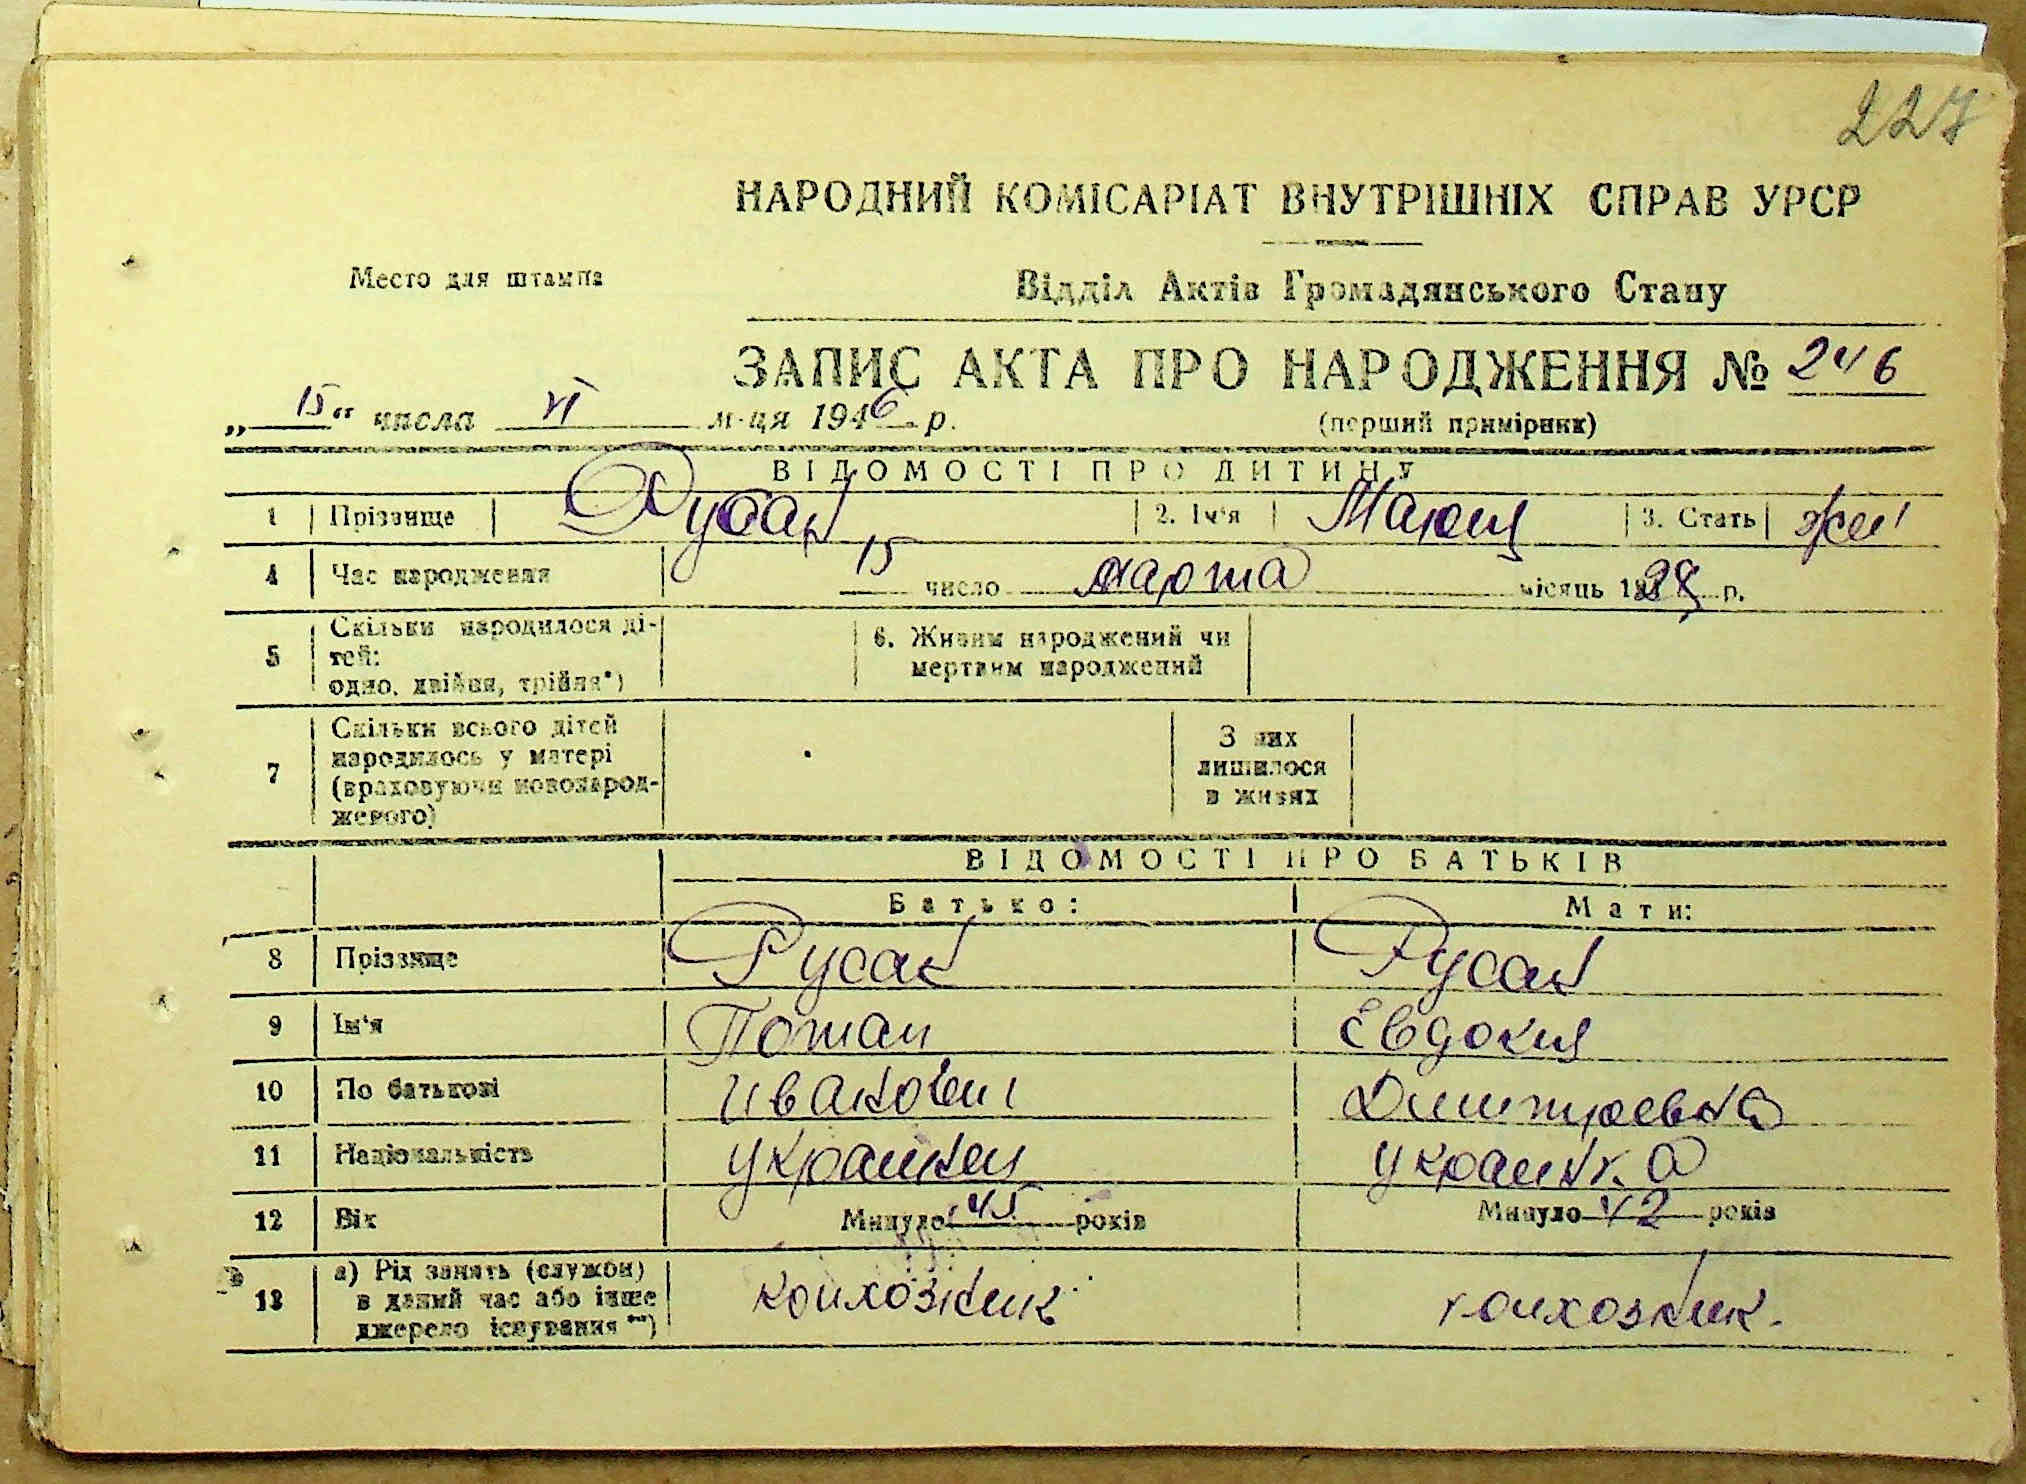 227
НАРОДНИЙ КОМІСАРІАТ ВНУТРІШНІХ СПРАВ УРСР
Место для штампа
Відділ Актів Громадянського Стану
ЗАПИС АКТА ПРО НАРОДЖЕННЯ № 246
„15“ числа VI м-ця 1946 р.
(перший примірник)
ВІДОМОСТІ ПРО ДИТИНУ
1 Прізвище Русак 2. Ім'я Мария 3. Стать жен
4 Час народження 15 число марта місяць р.
5 Скільки народилося ді-
тей:
одно, двійня, трійня*)
6. Живим народжений чи
мертвим народжений
7 Скільки всього дітей
народилось у матері
(враховуючи новонарод-
женого)
З них
лишилося
в живих
ВІДОМОСТІ ПРО БАТЬКІВ
Батько: Мати:
8 Прізвище Русак Русак
9 Ім'я Потап Евдокия
10 По батькові Иванович Дмитревна
11 Національність украинец украинка
12 Вік Минуло 45 років Минуло 42 років
13 а) Рід занять (служби)
в даний час або інше
джерело існування **)
колхозник колхозник.